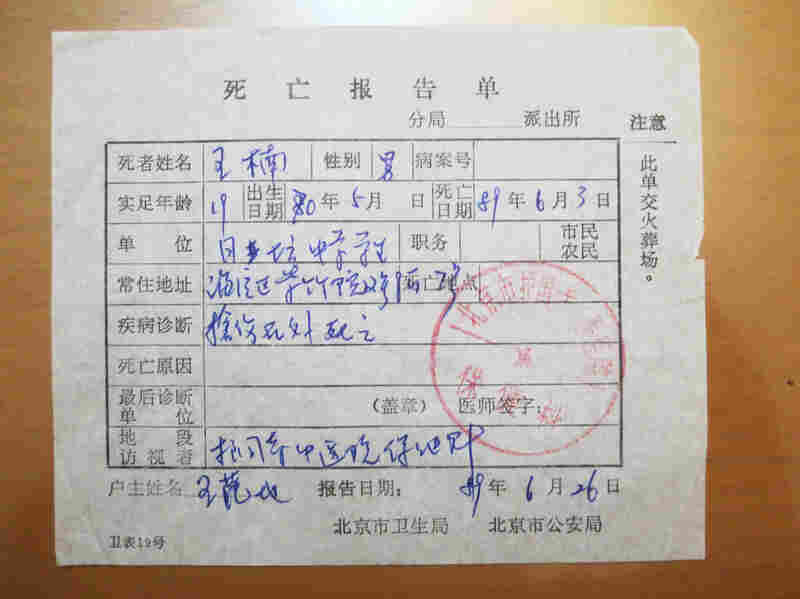 死亡报告单
分局 派出所 注意
死者姓名 王楠 性别 男 病案号
实足年龄 19 出生日期 年 5月 日 死亡日期 89年6月3日
单位 月坛中学学生 职务 市民 农民
常住地址 海淀区 死亡地点
疾病诊断 枪伤 外死亡
死亡原因
最后诊断单位 (盖章) 医师签字:
地段访视者 护国寺中医院保健科
户主姓名 王范地 报告日期: 89年6月26日
北京市卫生局 北京市公安局
卫表19号
此单交火葬场。
北京市护国寺
保健科